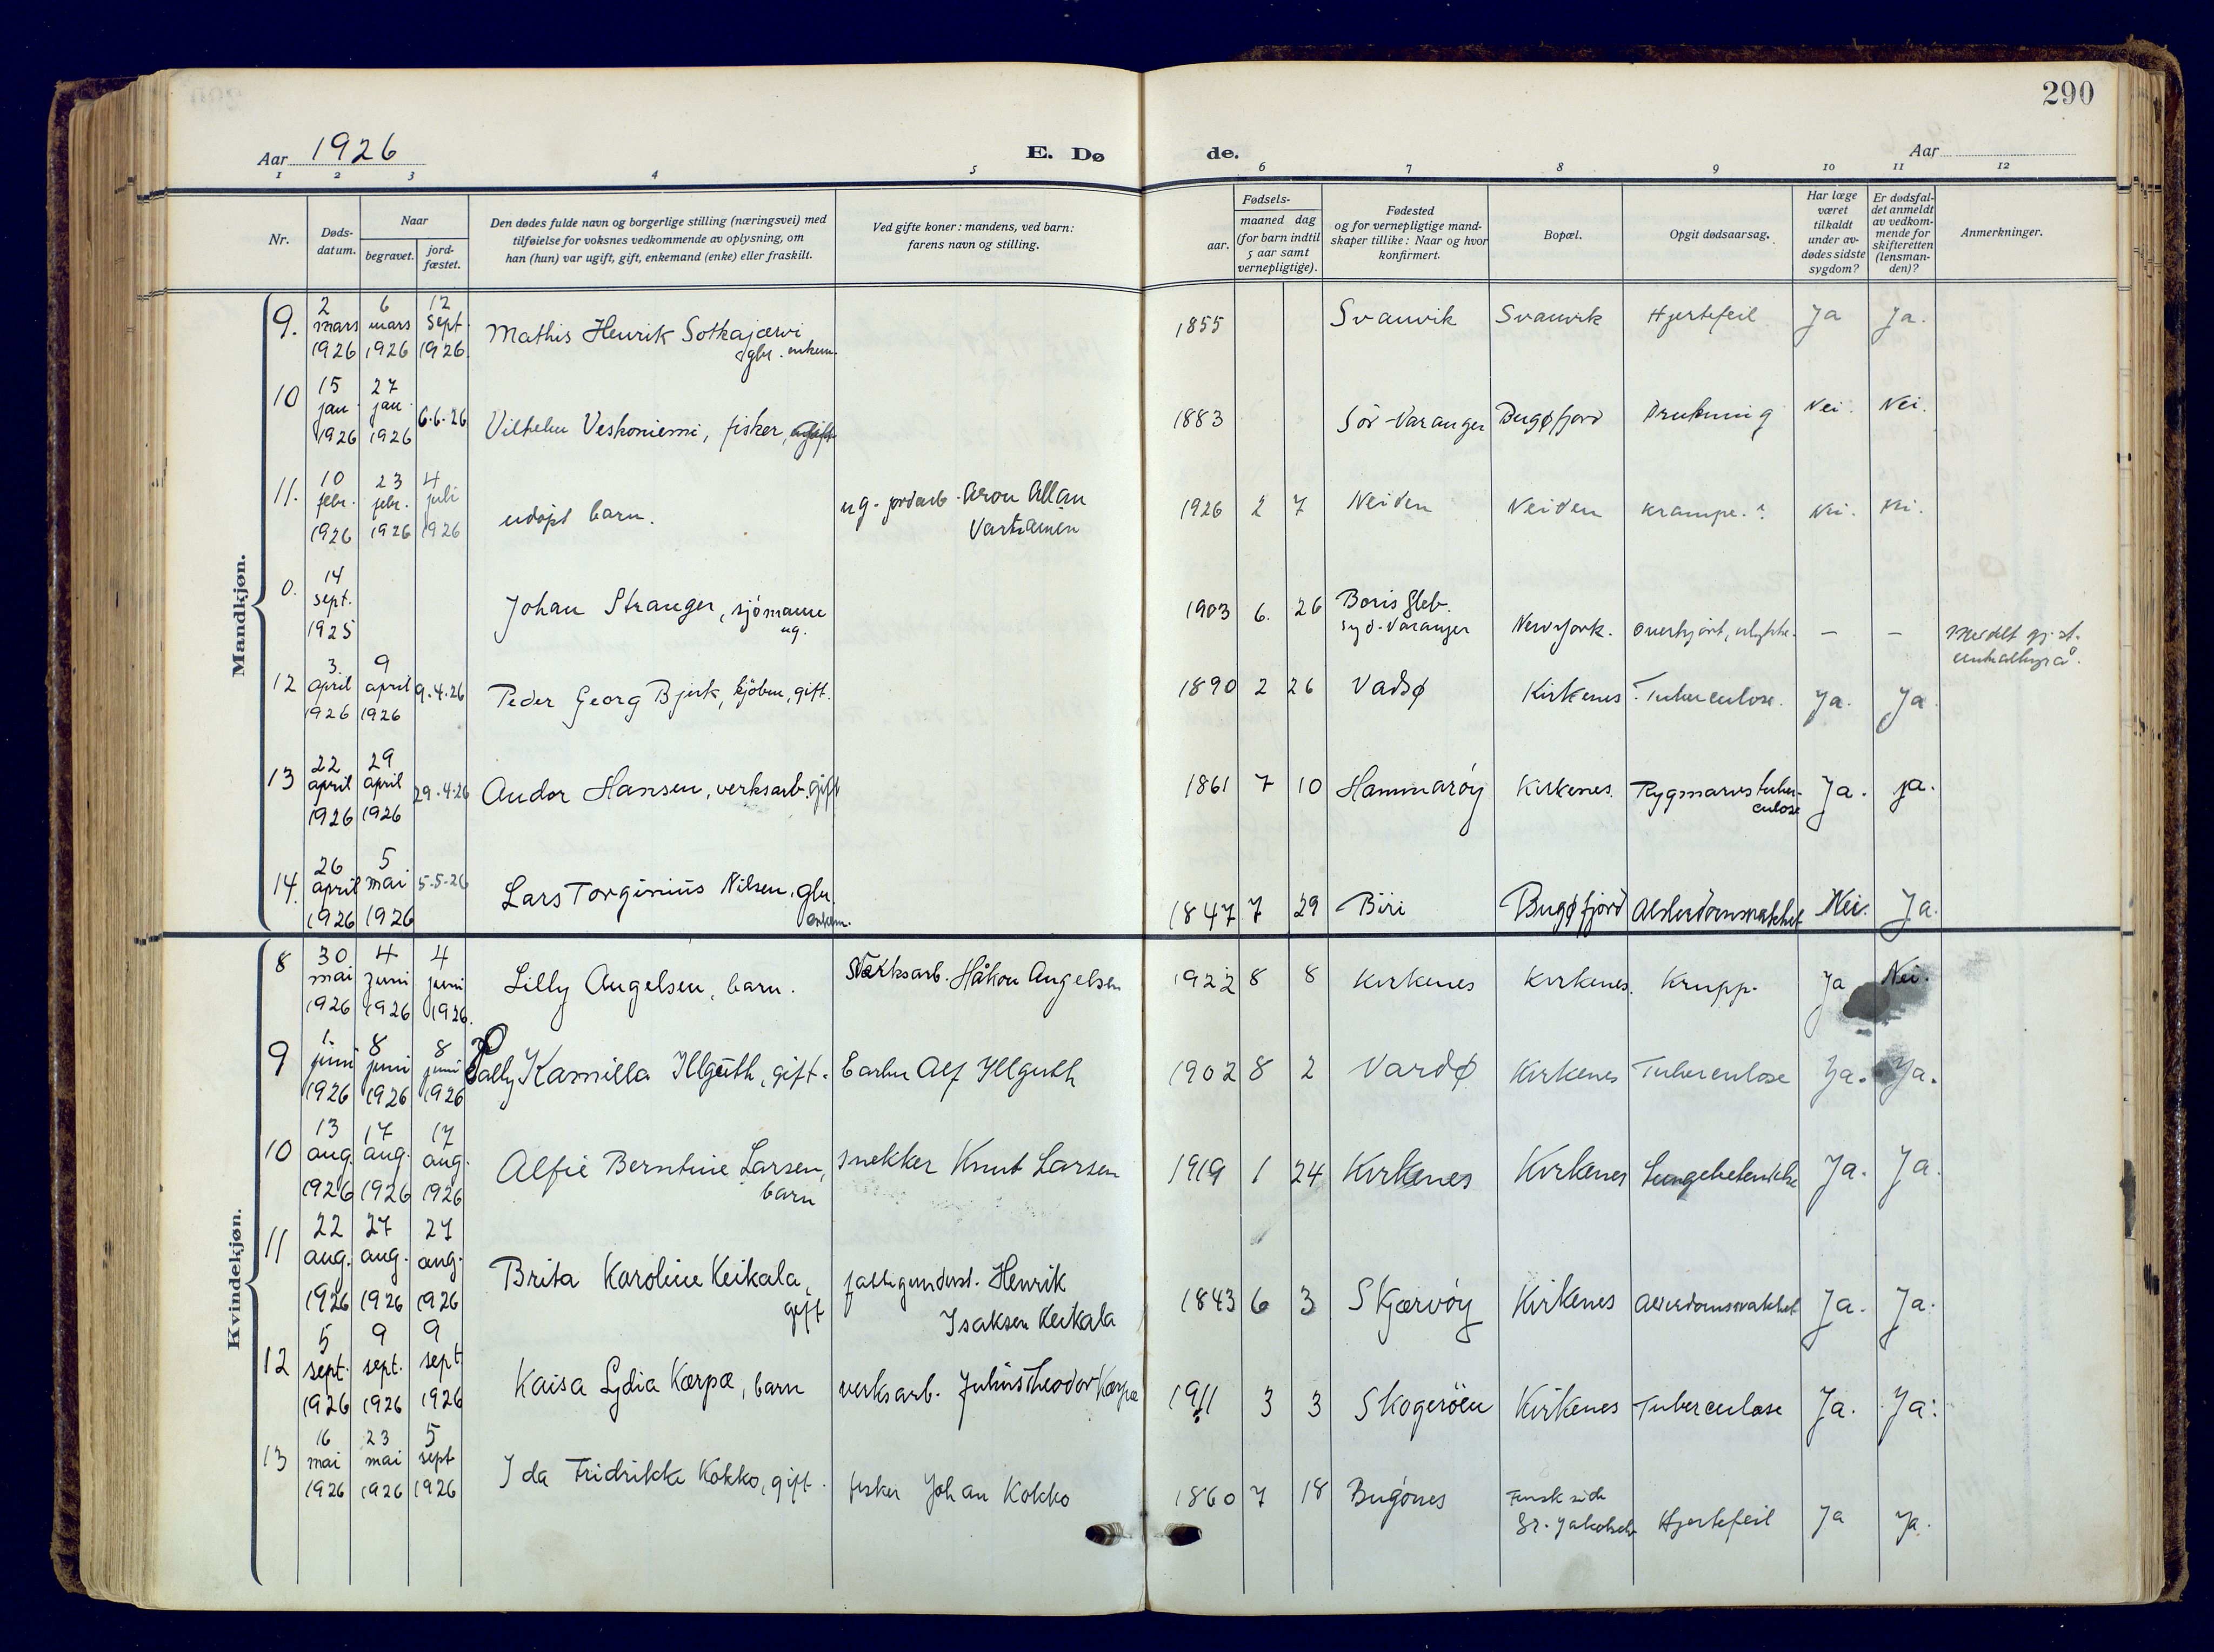 290
Aar 1926
E. Dø
de.
Aar
1 2 3 4 5 6 7 8 9 10 11 12
Nr.
Døds-
datum.
Naar
begravet.
jord-
fæstet.
Den dødes fulde navn og borgerlige stilling (næringsvei) med
tilføielse for voksnes vedkommende av oplysning, om
han (hun) var ugift, gift, enkemand (enke) eller fraskilt.
Ved gifte koner: mandens, ved barn:
farens navn og stilling.
Fødsels-
aar.
maaned dag
(for barn indtil
5 aar samt
vernepligtige).
Fødested
og for vernepligtige mand-
skaper tillike: Naar og hvor
konfirmert.
Bopæl.
Opgit dødsaarsag.
Har læge
været
tilkaldt
under av-
dødes sidste
sygdom?
Er dødsfal-
det anmeldt
av vedkom-
mende for
skifteretten
(lensman-
den)?
Anmerkninger.
Mandkjøn.
9. 2 mars 1926 6 mars 1926 12 sept. 1926 Mathis Henrik Sotkajærvi
gbr. enkem. 1855 Svanvik Svanvik Hjertefeil Ja Ja.
10 15 jan. 1926 27 jan. 1926 6.6.26 Vilhelm Veskoniemi, fisker, 1883 Sör-Varanger Bugøfjord Drukning Nei. Nei.
11. 10 febr. 1926 23 febr. 1926 4 juli 1926 udöpt barn. ug. jordarb. Aron Allan
Vartiainen 1926 2 7 Neiden Neiden Krampe.? Nei. Nei.
0. 14 sept. 1925 Johan Stranger, sjömann
ug. 1903 6. 26 Boris Gleb.
Syd-Varanger New York. Overkjört, ulykke. — — Meddelt gj. st.
centralbyrå.
12 3. april 1926 9 april 1926 9.4.26 Peder Georg Bjerk, kjöbm, gift. 1890 2 26 Vadsø Kirkenes Tuberculose. Ja. Ja
13 22 april 1926 29 april 1926 29.4.26 Andor Hansen, verksarb. gift 1861 7 10 Hammaröy Kirkenes. Rygmarvstuber-
culose Ja. Ja.
14. 26 april 1926 5 mai 1926 5.5.26 Lars Torginius Nilsen, gbr.
enkem. 1847 7 29 Biri Bugøfjord Alderdomsvakhet Nei. Ja.
Kvindekjøn.
8 30 mai 1926 4 juni 1926 4 juni 1926. Lilly Angelsen, barn. Verksarb. Håkon Angelsen 1922 8 8 Kirkenes Kirkenes. Krupp. Ja Nei.
9 1. juni 1926 8 juni 1926 8 juni 1926 Pally Kamilla Illguth, gift. Barber Alf Illguth 1902 8 2 Vardø Kirkenes Tuberculose Ja. Ja.
10 13 aug. 1926 17 aug. 1926 17 aug. 1926 Alfie Berntine Larsen,
barn snekker Knut Larsen 1919 1 24 Kirkenes Kirkenes Lungebetendelse Ja. Ja.
11 22 aug. 1926 27 aug. 1926 27 aug. 1926 Brita Karoline Keikala,
gift fattigunderst. Henrik
Isaksen Keikala 1843 6 3 Skjærvöy Kirkenes Alderdomsvakhet Ja. Ja.
12 5 sept. 1926 9 sept. 1926 9 sept. 1926 Kaisa Lydia Kærpæ, barn verksarb. Julius Theodor Kærpæ 1911 3 3 Skogeröen Kirkenes Tuberculose Ja. Ja.
13 16 mai 1926 23 mai 1926 5 sept 1926 Ida Fridrikke Kokko, gift. fisker Johan Kokko 1860 7 18 Bugönes Finsk side
Gr. Jakobselv Hjertefeil Ja Ja.